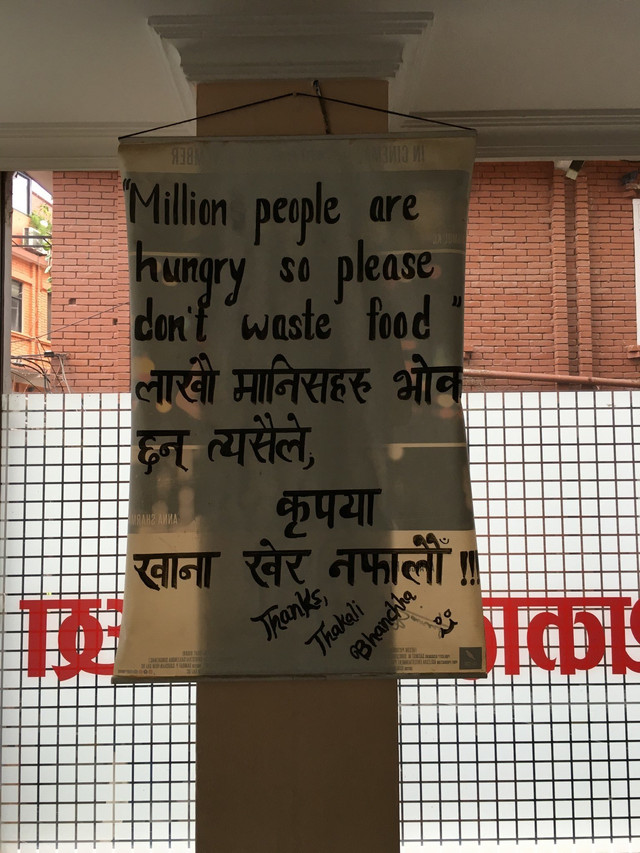 "Million people are
hungry so please
don't waste food"
लाखौ मानिसहरु भोक
छन् त्यसैले,
कृपया
खाना खेर नफालौँ !!!
Thanks,
Thakali
Bhanchha